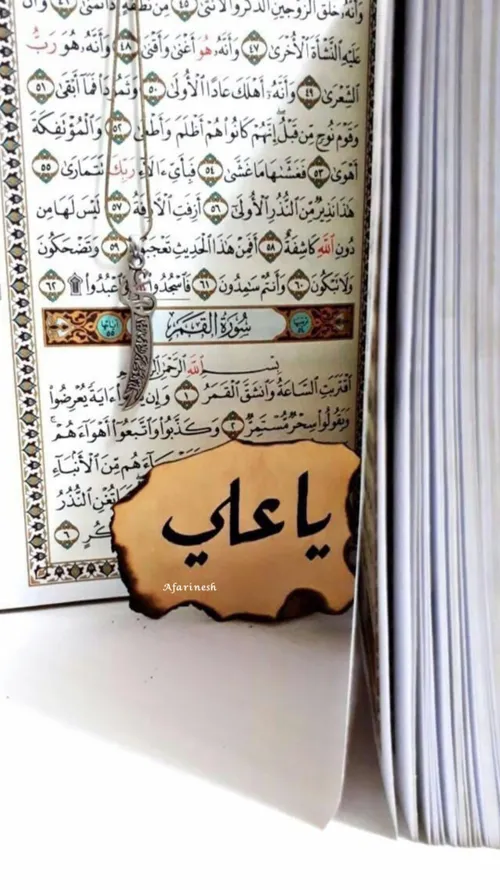 وَأَنَّهُۥ خَلَقَ ٱلزَّوْجَيْنِ ٱلذَّكَرَ وَٱلْأُنثَىٰ ٤٥ مِن نُّطْفَةٍ إِذَا تُمْنَىٰ ٤٦ وَأَنَّ
عَلَيْهِ ٱلنَّشْأَةَ ٱلْأُخْرَىٰ ٤٧ وَأَنَّهُۥ هُوَ أَغْنَىٰ وَأَقْنَىٰ ٤٨ وَأَنَّهُۥ هُوَ رَبُّ
ٱلشِّعْرَىٰ ٤٩ وَأَنَّهُۥٓ أَهْلَكَ عَادًا ٱلْأُولَىٰ ٥٠ وَثَمُودَا۟ فَمَآ أَبْقَىٰ ٥١
وَقَوْمَ نُوحٍ مِّن قَبْلُ إِنَّهُمْ كَانُوا۟ هُمْ أَظْلَمَ وَأَطْغَىٰ ٥٢ وَٱلْمُؤْتَفِكَةَ
أَهْوَىٰ ٥٣ فَغَشَّىٰهَا مَا غَشَّىٰ ٥٤ فَبِأَىِّ ءَالَآءِ رَبِّكَ تَتَمَارَىٰ ٥٥
هَٰذَا نَذِيرٌ مِّنَ ٱلنُّذُرِ ٱلْأُولَىٰٓ ٥٦ أَزِفَتِ ٱلْءَازِفَةُ ٥٧ لَيْسَ لَهَا مِن
دُونِ ٱللَّهِ كَاشِفَةٌ ٥٨ أَفَمِنْ هَٰذَا ٱلْحَدِيثِ تَعْجَبُونَ ٥٩ وَتَضْحَكُونَ
وَلَا تَبْكُونَ ٦٠ وَأَنتُمْ سَٰمِدُونَ ٦١ فَٱسْجُدُوا۟ لِلَّهِ وَٱعْبُدُوا۟ ۩ ٦٢
سُورَةُ ٱلْقَمَرِ
بِسْمِ ٱللَّهِ ٱلرَّحْمَٰنِ ٱلرَّحِيمِ
ٱقْتَرَبَتِ ٱلسَّاعَةُ وَٱنشَقَّ ٱلْقَمَرُ ١ وَإِن يَرَوْا۟ ءَايَةً يُعْرِضُوا۟
وَيَقُولُوا۟ سِحْرٌ مُّسْتَمِرٌّ ٢ وَكَذَّبُوا۟ وَٱتَّبَعُوٓا۟ أَهْوَآءَهُمْ
جَآءَهُم مِّنَ ٱلْأَنۢبَآءِ
تُغْنِ ٱلنُّذُرُ
٦
يا علي
Afarinesh